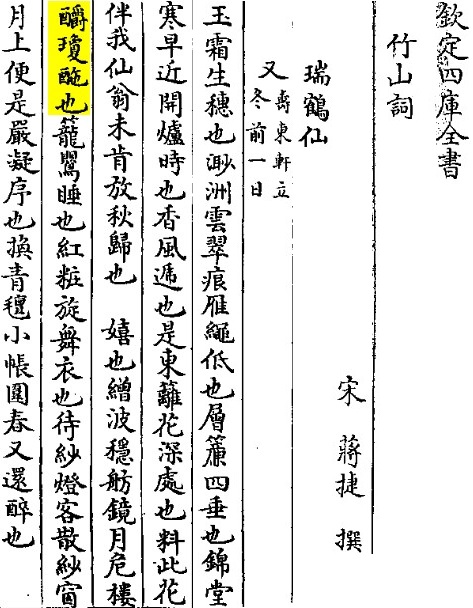 欽定四庫全書
竹山詞
宋 蔣捷 撰
瑞鶴仙
又 壽東軒立冬前一日
玉霜生穗也渺洲雲翠痕雁繩低也層簾四垂也錦堂
寒早近開爐時也香風遞也是東籬花深處也料此花
伴我仙翁未肯放秋歸也　嬉也繒波穩舫鏡月危樓
釂瓊酏也籠鶯睡也紅粧旋舞衣也待紗燈客散紗窗
月上便是嚴凝序也換青氊小帳圍春又還醉也